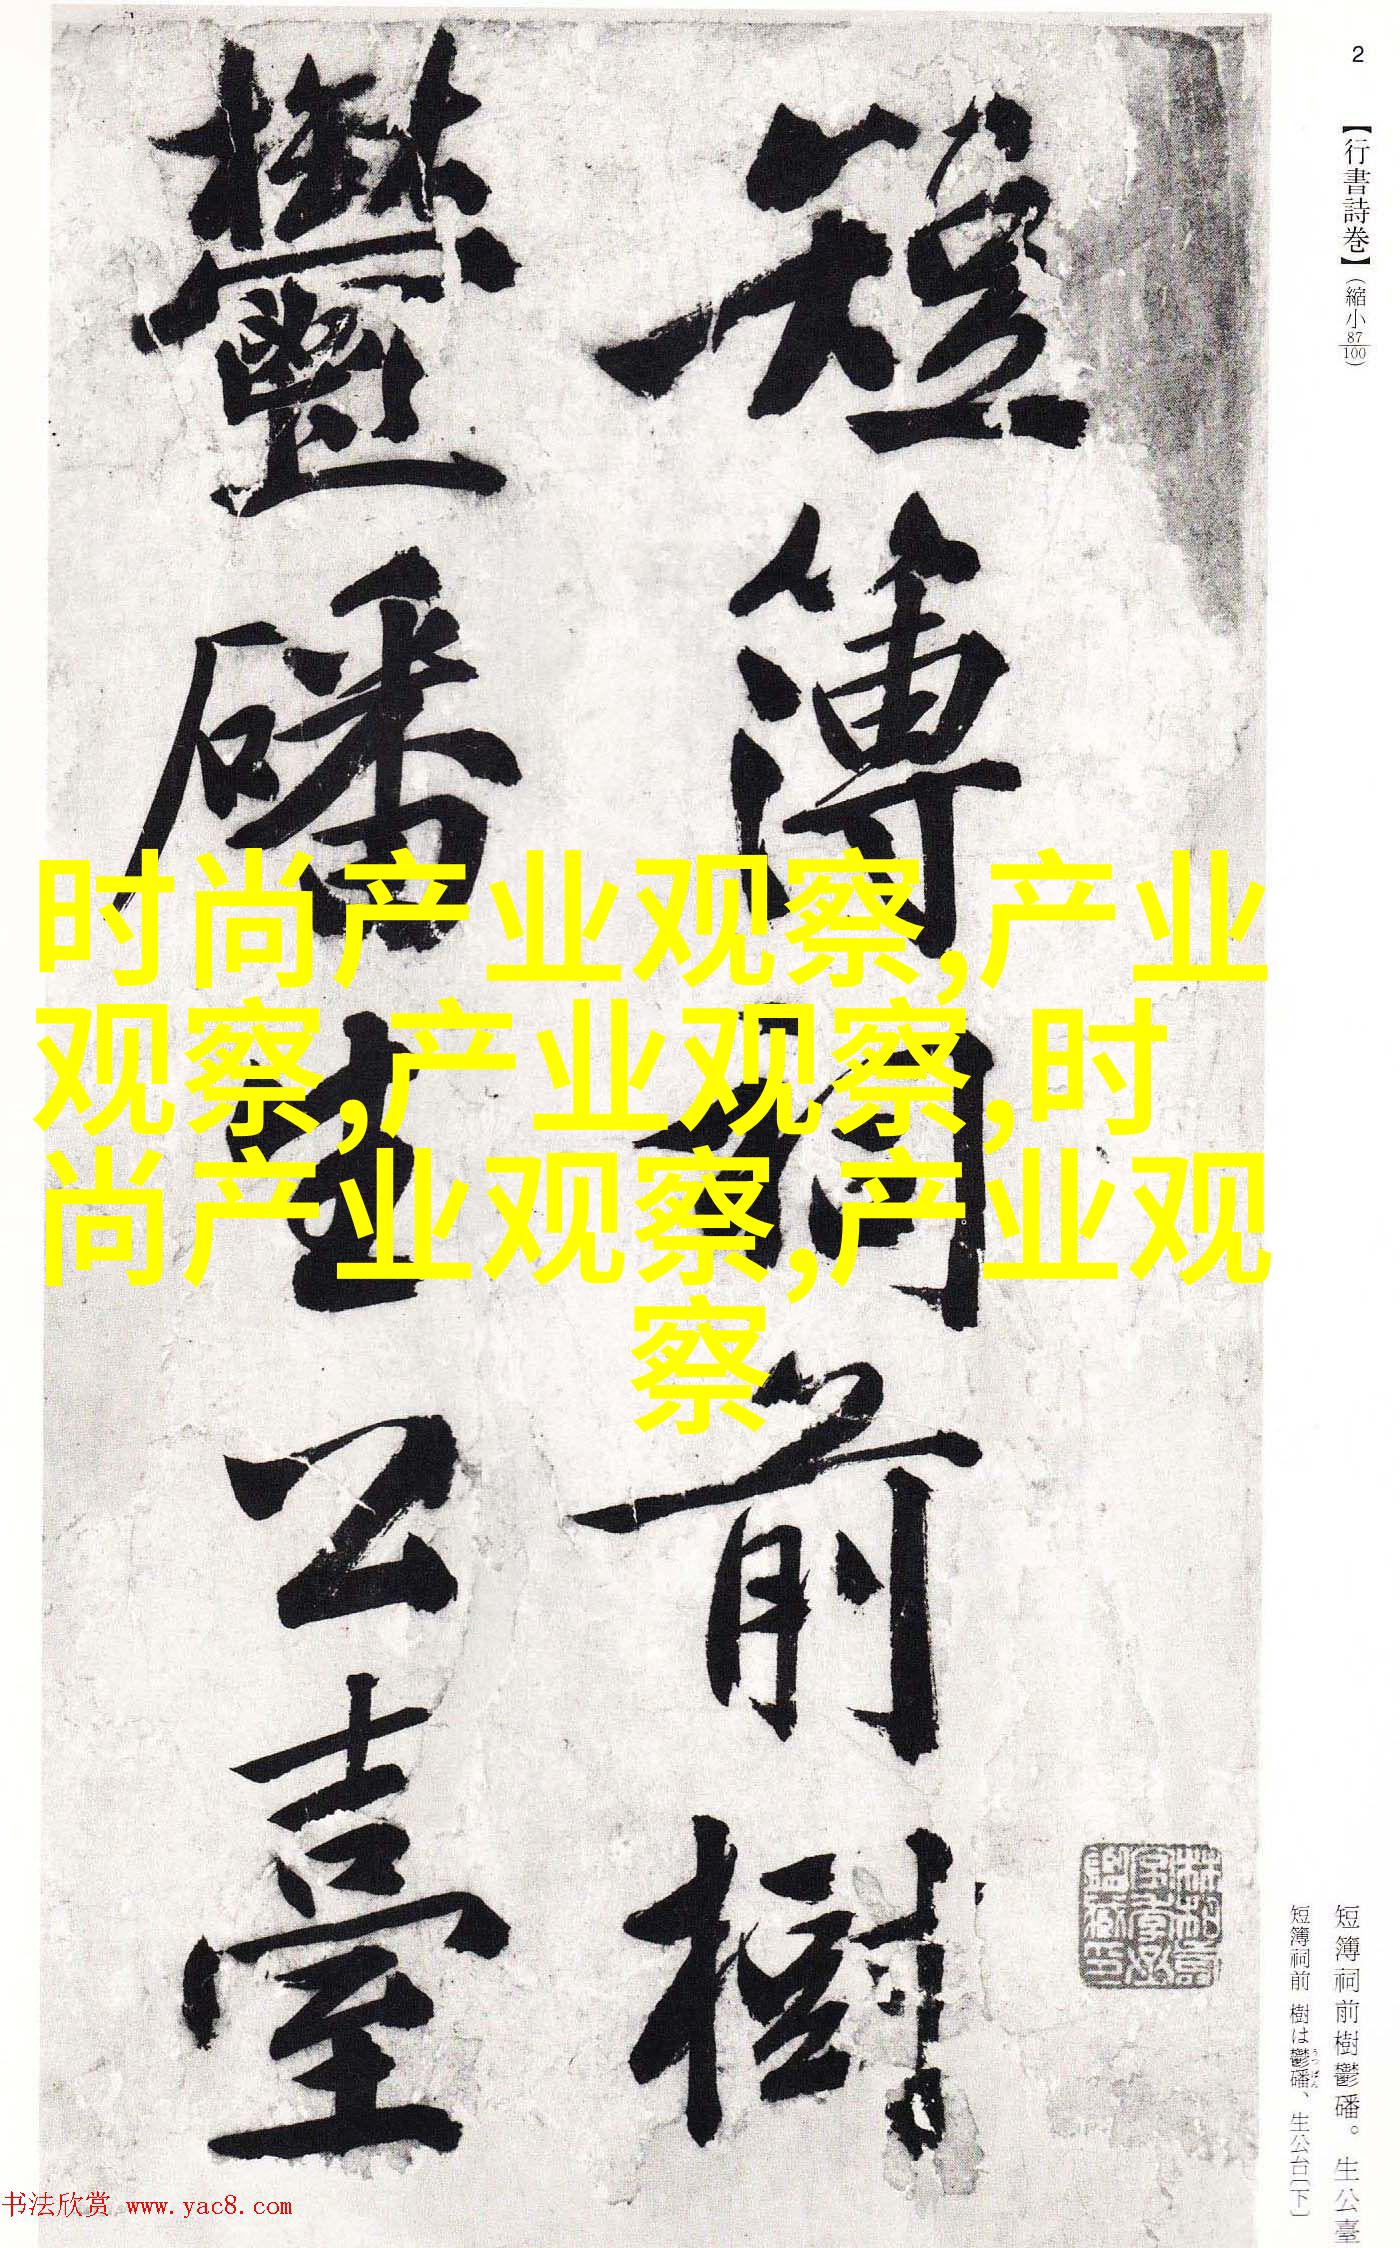 2
【行書詩巻】(縮小87/100)
短簿祠前樹
鬱磻生公臺
时尚产业观察,产业
观察,产业观察,时
尚产业观察,产业观
察
短簿祠前樹鬱磻。生公臺
短簿祠前 樹は鬱磻、生公台〔下〕
うっぱん
书法欣赏 www.yac8.com